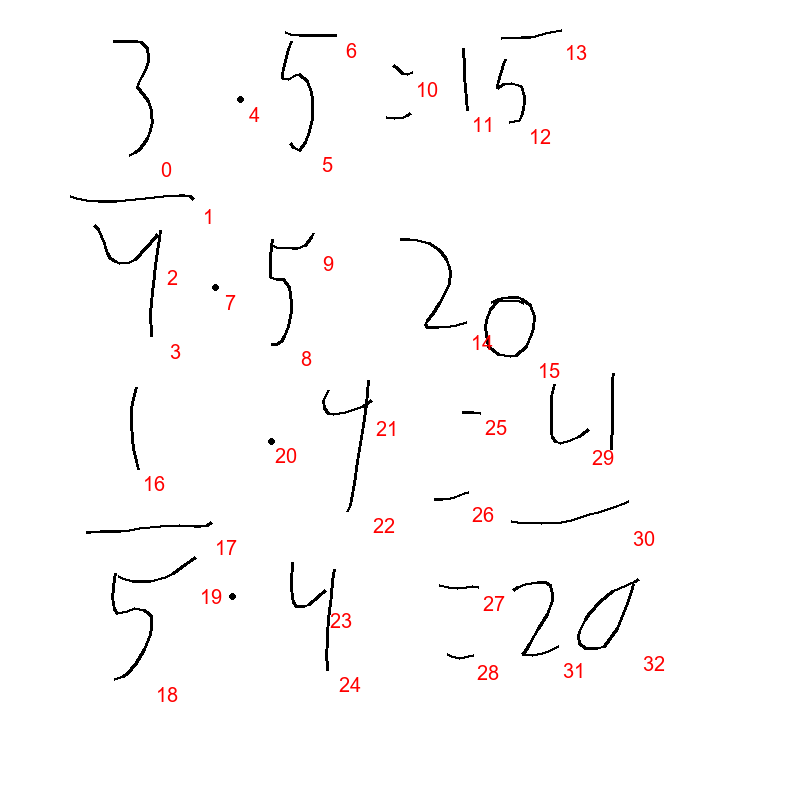 3 · 5 = 15
4 · 5 20
1 · 4 = 4
5 · 4 = 20
0
1
2
3
4
5
6
7
8
9
10
11
12
13
14
15
16
17
18
19
20
21
22
23
24
25
26
27
28
29
30
31
32